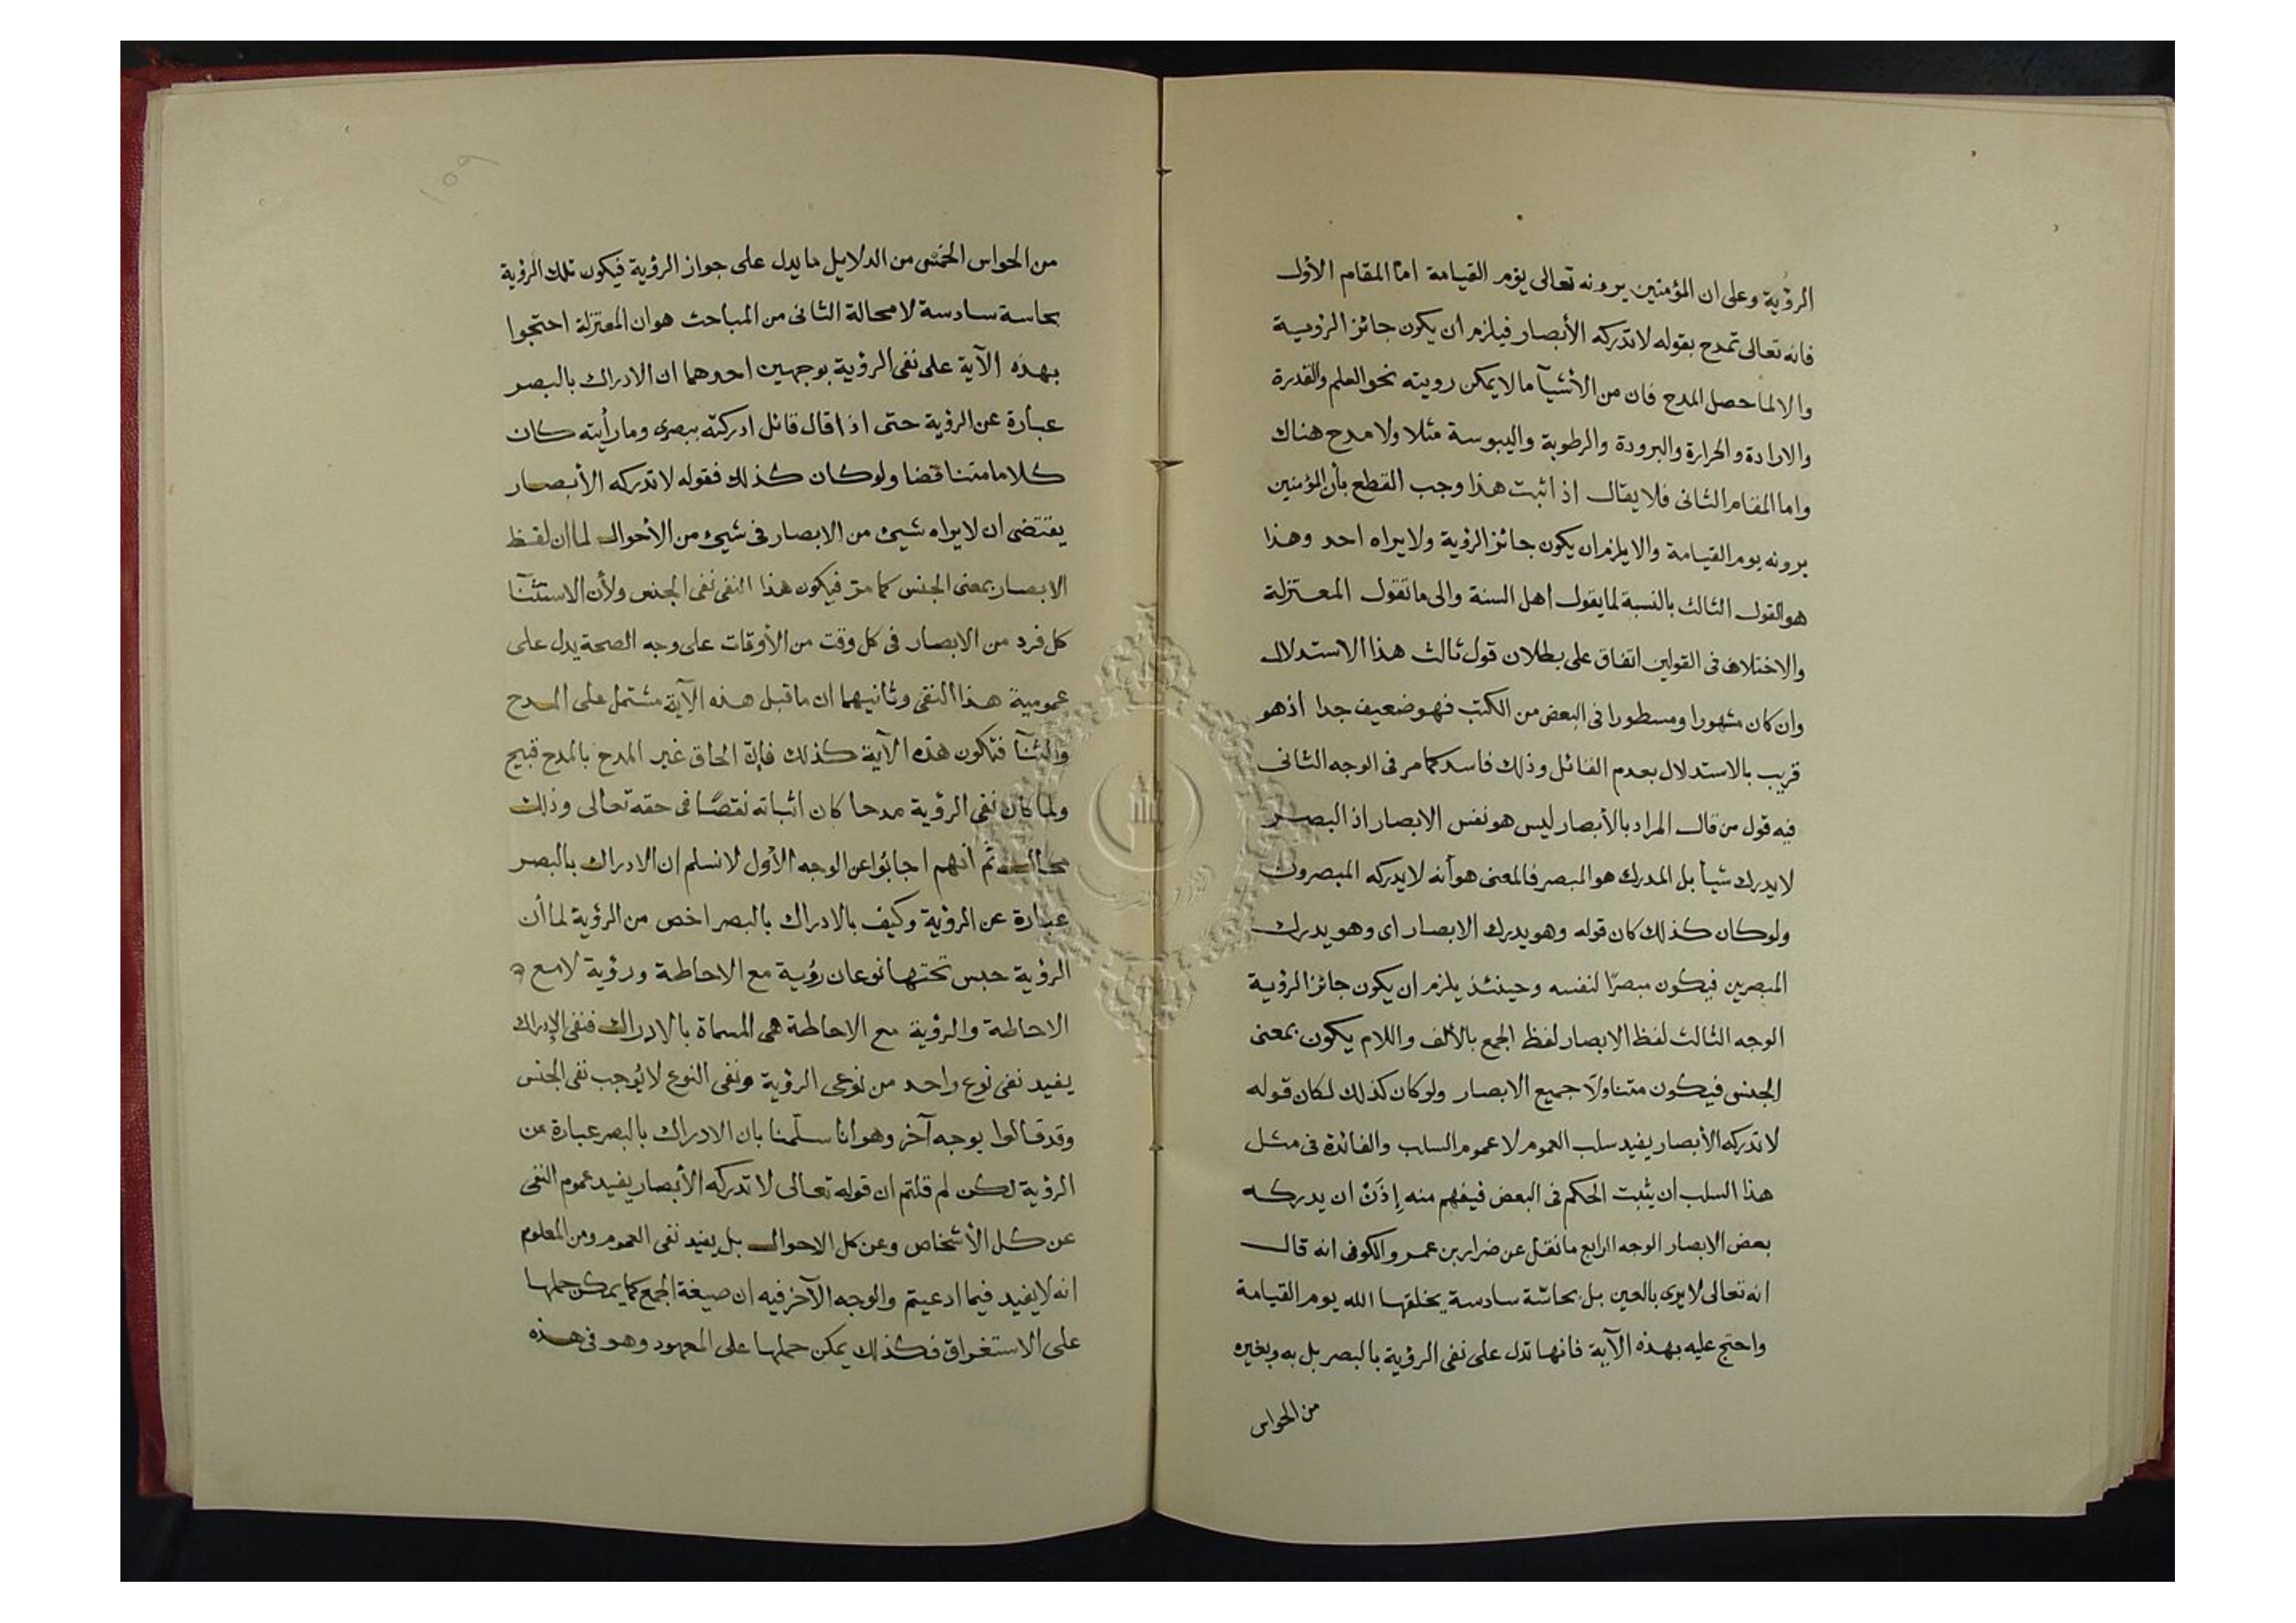 الرؤية وعلى ان المؤمنين يرونه تعالى يوم القيامة امّا المقام الأول
فانه تعالى تمدح بقوله لا تدركه الأبصار فيلزم ان يكون جائز الرؤية
والا لما حصل المدح فان من الأشيآ ما لا يمكن رويته نحو العلم والقدرة
والارادة والحرارة والبرودة والرطوبة واليبوسة مثلا ولا مدح هناك
واما المقام الثانى فلا يقال اذ اثبت هذا وجب القطع بأن المؤمنين
يرونه يوم القيامة والا يلزم ان يكون جائز الرؤية ولا يراه احد وهذا
هو القول الثالث بالنسبة لما يقول اهل السنة والى ما تقول المعتزلة
والاختلاف فى القولين اتفاق على بطلان قول ثالث هذا الاستدلال
وان كان مشهورا ومسطورا فى البعض من الكتب فهو ضعيف جدا اذ هو
قريب بالاستدلال بعدم القائل وذلك فاسد كما مر فى الوجه الثانى
فيه قول من قال المراد بالأبصار ليس هو نفس الابصار اذ البصر
لا يدرك شيأ بل المدرك هو المبصر فالمعنى هو أنه لا يدركه المبصرون
ولو كان كذلك كان قوله وهو يدرك الابصار اى وهو يدرك
المبصرين فيكون مبصرًا لنفسه وحينئذ يلزم ان يكون جائز الرؤية
الوجه الثالث لفظ الابصار لفظ الجمع بالألف واللام يكون بمعنى
الجنس فيكون متناولاً جميع الابصار ولو كان كذلك لكان قوله
لا تدركه الأبصار يفيد سلب العموم لا عموم السلب والفائدة فى مثل
هذا السلب ان يثبت الحكم فى البعض فيفهم منه إذَنْ ان يدركه
بعض الابصار الوجه الرابع ما نقل عن ضرار بن عمرو الكوفى انه قال
انه تعالى لا يرى بالعين بل بحاسّة سادسة يخلقها الله يوم القيامة
واحتج عليه بهذه الآية فانها تدل على نفى الرؤية بالبصر بل به وبغيره
من الحواس
١٥٩
من الحواس الخمس من الدلايل ما يدل على جواز الرؤية فيكون تلك الرؤية
بحاسة سادسة لا محالة الثانى من المباحث هو ان المعتزلة احتجوا
بهذه الآية على نفى الرؤية بوجهين احدهما ان الادراك بالبصر
عبارة عن الرؤية حتى اذا قال قائل ادركته ببصرى وما رأيته كان
كلاما متناقضا ولو كان كذلك فقوله لا تدركه الأبصار
يقتضى ان لا يراه شيئ من الابصار فى شيئ من الأحوال لما ان لفظ
الابصار بمعنى الجنس كما مرّ فيكون هذا النفى نفى الجنس ولأن الاستثنآ
كل فرد من الابصار فى كل وقت من الأوقات على وجه الصحة يدل على
عمومية هذا النفى وثانيهما ان ما قبل هذه الآية مشتمل على المدح
والثنآ فتكون هذه الآية كذلك فإنّ الحاق غير المدح بالمدح قبيح
ولما كان نفى الرؤية مدحا كان اثباته نقصًا فى حقه تعالى وذلك
محال ثم أنهم اجابوا عن الوجه الأول لا نسلم ان الادراك بالبصر
عبارة عن الرؤية وكيف بالادراك بالبصر اخص من الرؤية لما أن
الرؤية جنس تحتها نوعان رؤية مع الاحاطة ورؤية لا مع
الاحاطة والرؤية مع الاحاطة هى المسماة بالادراك فنفى الإدراك
يفيد نفى نوع واحد من نوعى الرؤية ونفى النوع لا يُوجب نفى الجنس
وقد قالوا بوجه آخر وهو انا سلّمنا بان الادراك بالبصر عبارة من
الرؤية لكن لم قلتم ان قوله تعالى لا تدركه الأبصار يفيد عموم النفى
عن كل الأشخاص وعن كل الاحوال بل يفيد نفى العموم ومن المعلوم
انه لا يفيد فيما ادعيتم والوجه الآخر فيه ان صيغة الجمع كما يمكن حملها
على الاستغراق فكذلك يمكن حملها على المعهود وهو فى هذه